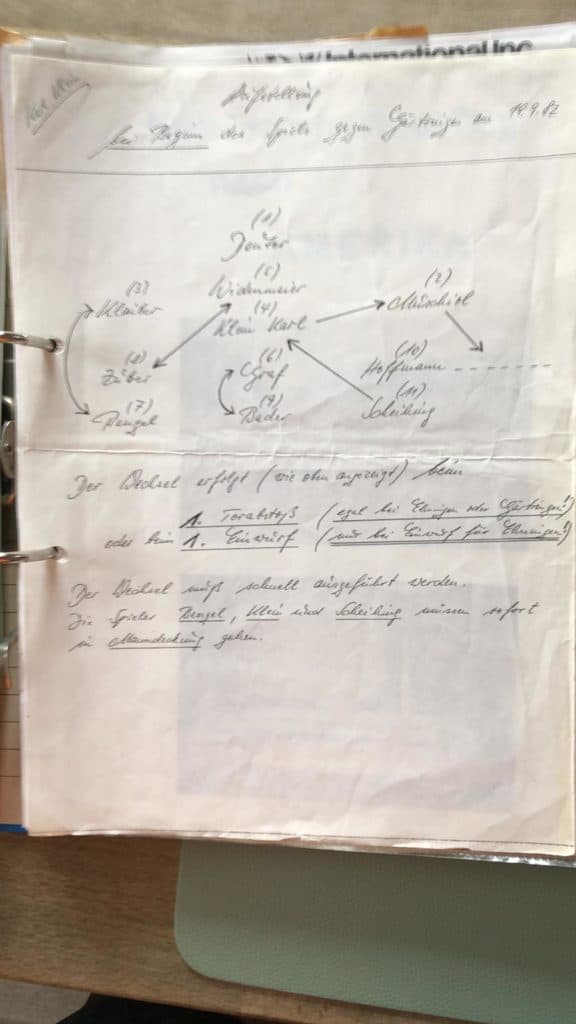 International Inc.
Karl Klein
Aufstellung
bei Beginn des Spiels gegen Gärtringen am 19.9.87
(1)
(5)
Widenmeier
(3) (4) (2)
Klaiber Klein Karl
(8) (6) (10)
Zuber Graf Hoffmann
(7) (9) (11)
Bengel Bader Scheibing
Der Wechsel erfolgt (wie oben angezeigt) beim
1. Torabstoß (egal bei Ehningen oder Gärtringen!)
oder beim 1. Einwurf (nur bei Einwurf für Ehningen!)
Der Wechsel muß schnell ausgeführt werden.
Die Spieler Bengel, Klein und Scheibing müssen sofort
in Manndeckung gehen.